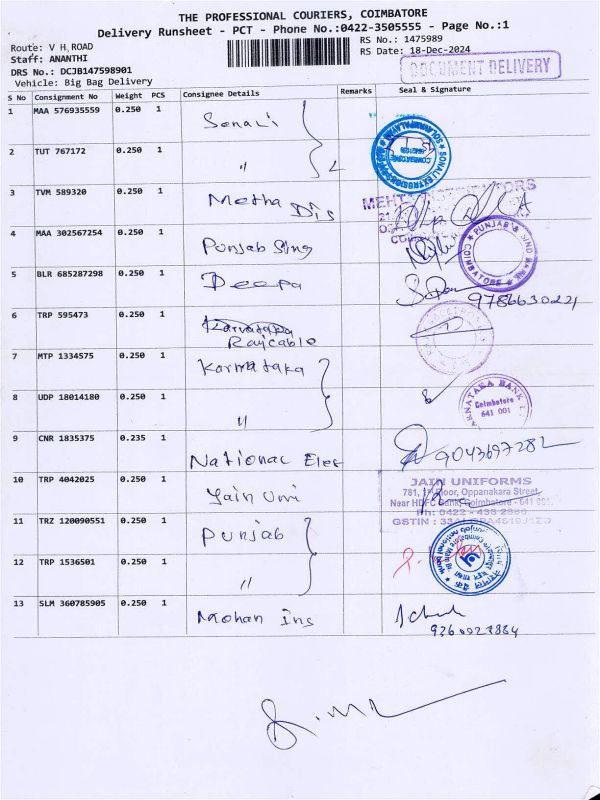 THE PROFESSIONAL COURIERS, COIMBATORE
Delivery Runsheet - PCT - Phone No.:0422-3505555 - Page No.:1
Route: V H ROAD
RS No.: 1475989
Staff: ANANTHI
RS Date: 18-Dec-2024
DRS No.: DCJB147598901
Vehicle: Big Bag Delivery
DOCUMENT DELIVERY
S No Consignment No Weight PCS Consignee Details Remarks Seal & Signature
1 MAA 576935559 0.250 1 Sonali
2 TUT 767172 0.250 1 "
3 TVM 589320 0.250 1 Metha Dis
4 MAA 302567254 0.250 1 Punjab Sing
PUNJAB & SIND BANK
COIMBATORE
5 BLR 685287298 0.250 1 Deepa
9786630221
6 TRP 595473 0.250 1 Rajcablo
7 MTP 1334575 0.250 1 Karnataka
8 UDP 18014180 0.250 1 "
KARNATAKA BANK
Coimbatore
641 001
9 CNR 1835375 0.235 1 National Eles
10 TRP 4042025 0.250 1 Jain Uni
JAIN UNIFORMS
781, 1st Floor, Oppanakara Street,
Near HDFC Bank, Coimbatore - 641 001.
11 TRZ 120090551 0.250 1 Punjab
12 TRP 1536501 0.250 1 "
13 SLM 360785905 0.250 1 Mohan Ins